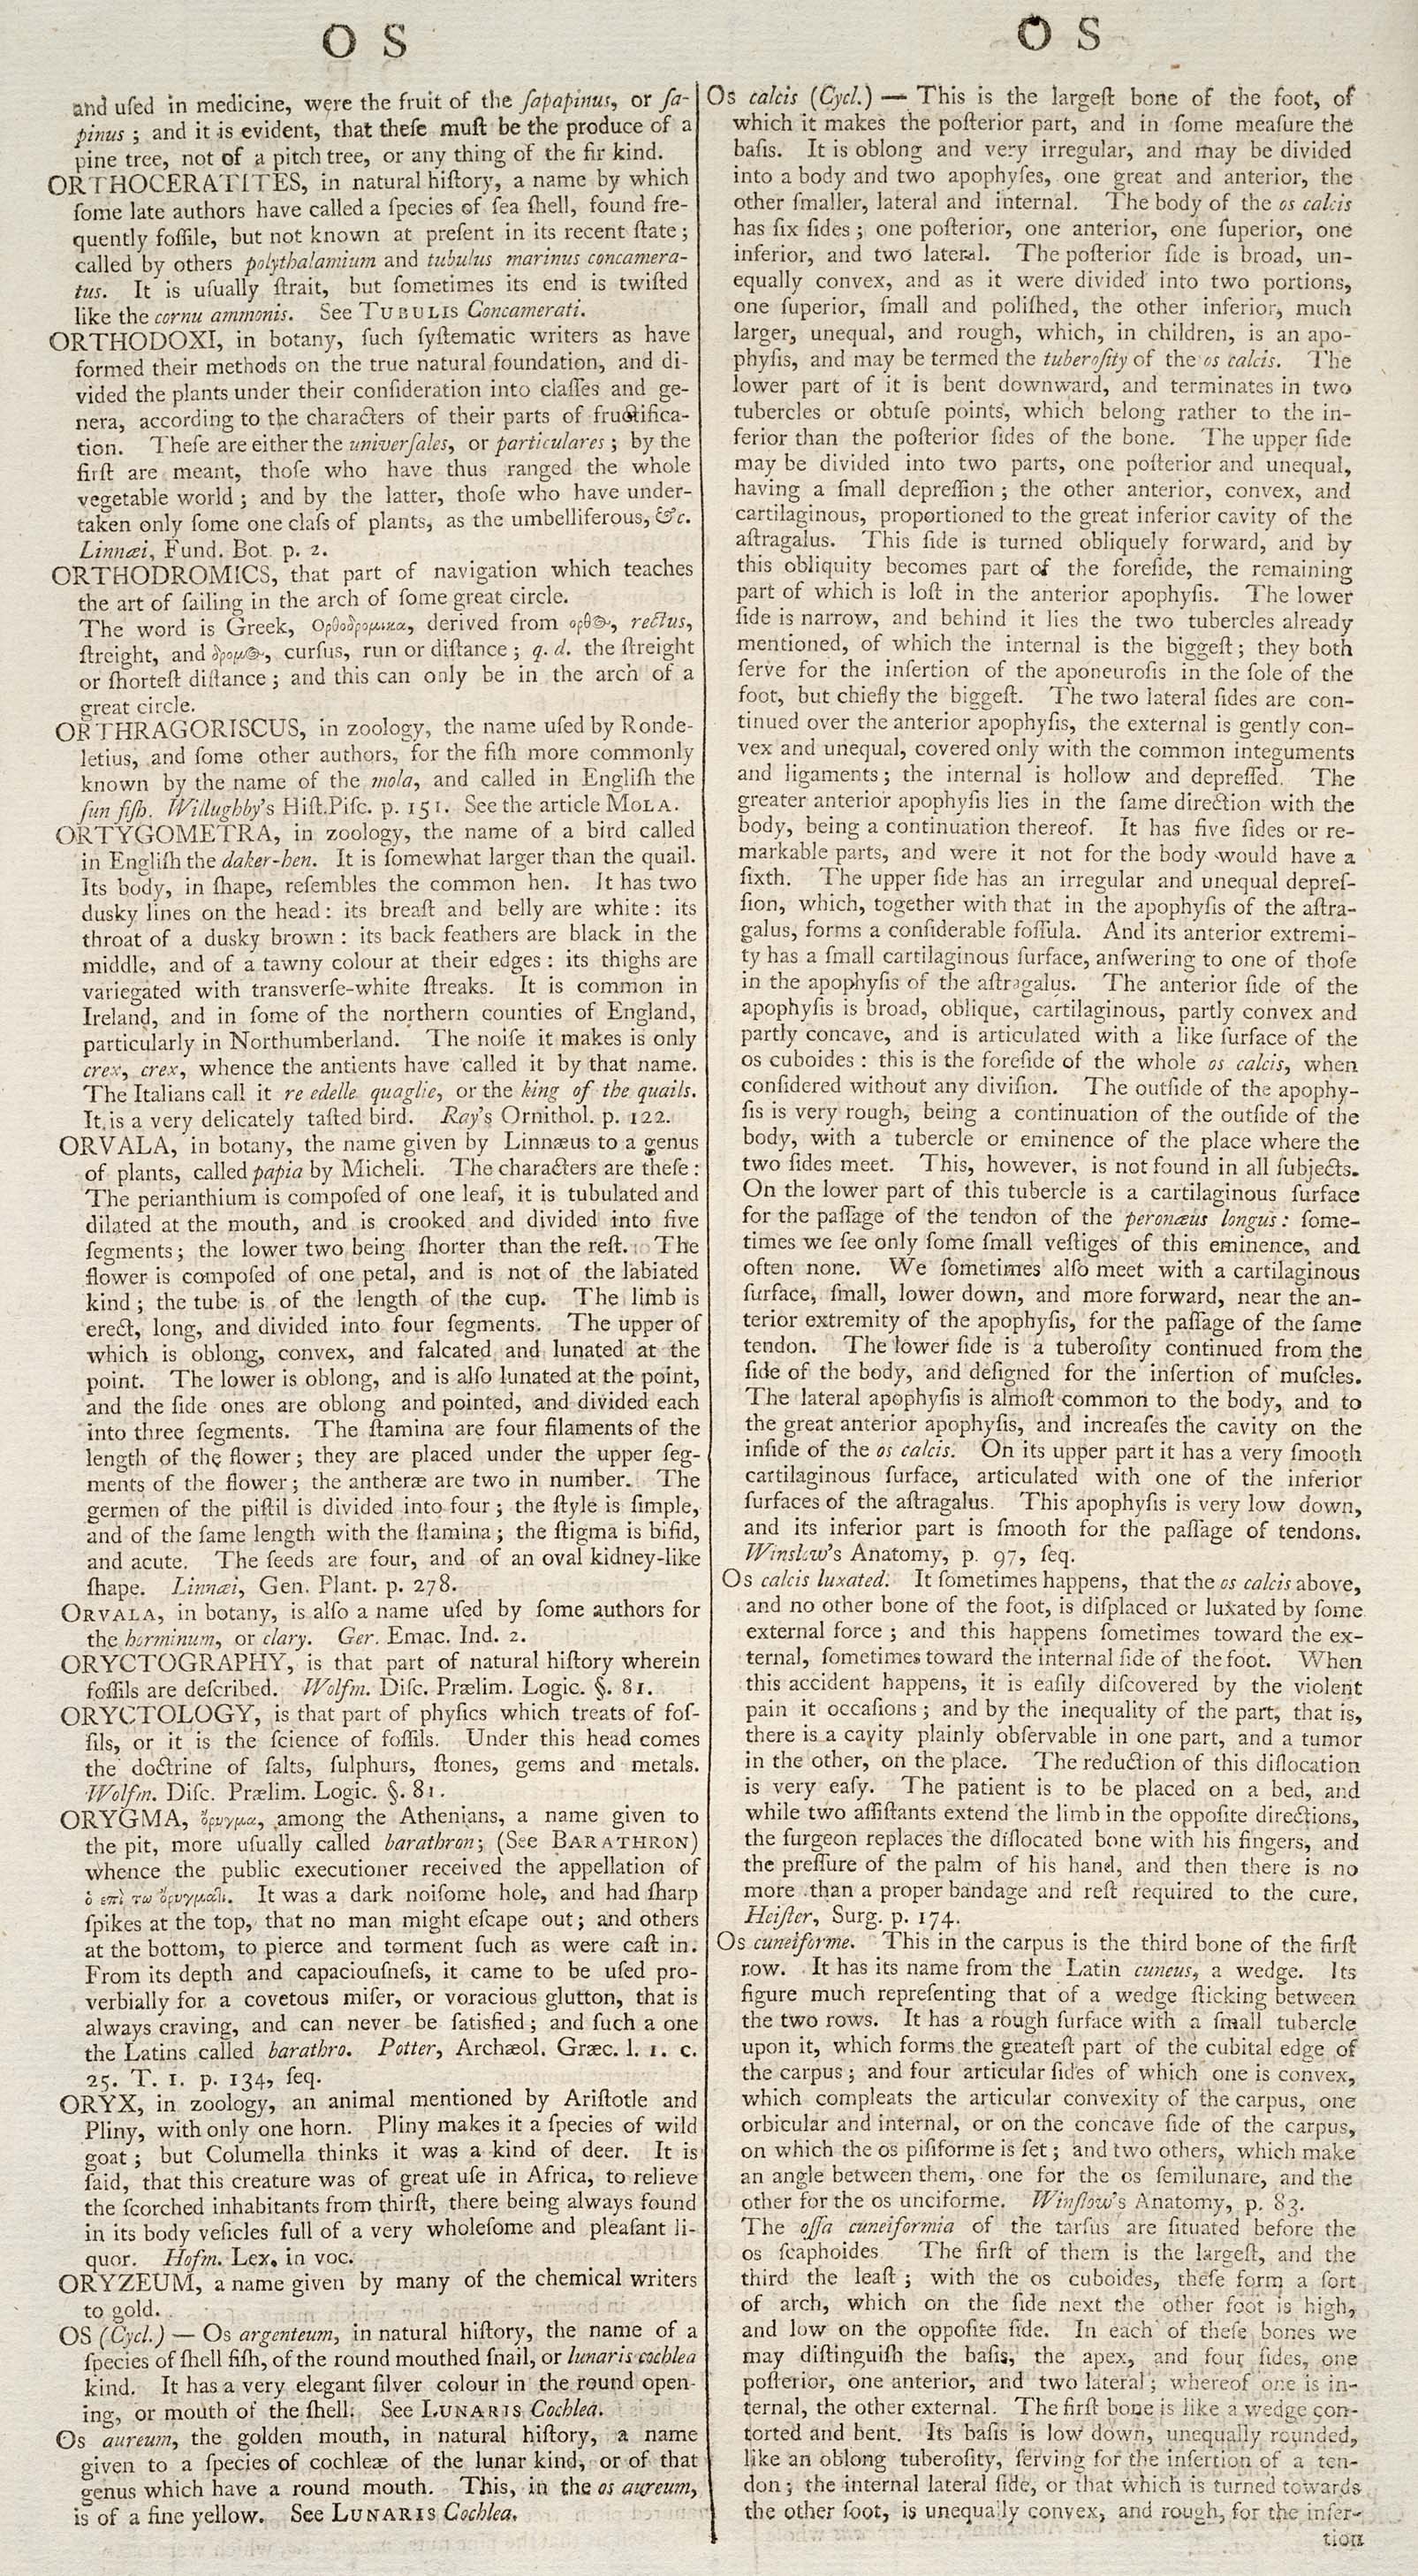 O S
and uſed in medicine, were the fruit of the ſapapinus, or ſa-
pinus; and it is evident, that theſe muſt be the produce of a
pine tree, not of a pitch tree, or any thing of the fir kind.
ORTHOCERATITES, in natural hiſtory, a name by which
ſome late authors have called a ſpecies of ſea ſhell, found fre-
quently foſſile, but not known at preſent in its recent ſtate;
called by others polythalamium and tubulus marinus concamera-
tus. It is uſually ſtrait, but ſometimes its end is twiſted
like the cornu ammonis. See TUBULIS Concamerati.
ORTHODOXI, in botany, ſuch ſyſtematic writers as have
formed their methods on the true natural foundation, and di-
vided the plants under their conſideration into claſſes and ge-
nera, according to the characters of their parts of fructifica-
tion. Theſe are either the univerſales, or particulares; by the
firſt are meant, thoſe who have thus ranged the whole
vegetable world; and by the latter, thoſe who have under-
taken only ſome one claſs of plants, as the umbelliferous, &c.
Linnæi, Fund. Bot. p. 2.
ORTHODROMICS, that part of navigation which teaches
the art of ſailing in the arch of ſome great circle.
The word is Greek, Ορθοδρομικα, derived from ορθ῀, rectus,
ſtreight, and δρομ῀, curſus, run or diſtance; q. d. the ſtreight
or ſhorteſt diſtance; and this can only be in the arch of a
great circle.
ORTHRAGORISCUS, in zoology, the name uſed by Ronde-
letius, and ſome other authors, for the fiſh more commonly
known by the name of the mola, and called in Engliſh the
ſun fiſh. Willughby's Hiſt. Piſc. p. 151. See the article MOLA.
ORTYGOMETRA, in zoology, the name of a bird called
in Engliſh the daker-hen. It is ſomewhat larger than the quail.
Its body, in ſhape, reſembles the common hen. It has two
dusky lines on the head: its breaſt and belly are white: its
throat of a dusky brown: its back feathers are black in the
middle, and of a tawny colour at their edges: its thighs are
variegated with transverſe-white ſtreaks. It is common in
Ireland, and in ſome of the northern counties of England,
particularly in Northumberland. The noiſe it makes is only
crex, crex, whence the antients have called it by that name.
The Italians call it re edelle quaglie, or the king of the quails.
It is a very delicately taſted bird. Ray's Ornithol. p. 122.
ORVALA, in botany, the name given by Linnæus to a genus
of plants, called papia by Micheli. The characters are theſe:
The perianthium is compoſed of one leaf, it is tubulated and
dilated at the mouth, and is crooked and divided into five
ſegments; the lower two being ſhorter than the reſt. The
flower is compoſed of one petal, and is not of the labiated
kind; the tube is of the length of the cup. The limb is
erect, long, and divided into four ſegments. The upper of
which is oblong, convex, and falcated and lunated at the
point. The lower is oblong, and is alſo lunated at the point,
and the ſide ones are oblong and pointed, and divided each
into three ſegments. The ſtamina are four filaments of the
length of the flower; they are placed under the upper ſeg-
ments of the flower; the antheræ are two in number. The
germen of the piſtil is divided into four; the ſtyle is ſimple,
and of the ſame length with the ſtamina; the ſtigma is bifid,
and acute. The ſeeds are four, and of an oval kidney-like
ſhape. Linnæi, Gen. Plant. p. 278.
ORVALA, in botany, is alſo a name uſed by ſome authors for
the horminum, or clary. Ger. Emac. Ind. 2.
ORYCTOGRAPHY, is that part of natural hiſtory wherein
foſſils are deſcribed. Wolfm. Diſc. Prælim. Logic. §. 81.
ORYCTOLOGY, is that part of phyſics which treats of foſ-
ſils, or it is the ſcience of foſſils. Under this head comes
the doctrine of ſalts, ſulphurs, ſtones, gems and metals.
Wolfm. Diſc. Prælim. Logic. §. 81.
ORYGMA, ὄρυγμα, among the Athenians, a name given to
the pit, more uſually called barathron; (See BARATHRON)
whence the public executioner received the appellation of
ὁ επὶ τω ὄρυγμαῖι. It was a dark noiſome hole, and had ſharp
ſpikes at the top, that no man might eſcape out; and others
at the bottom, to pierce and torment ſuch as were caſt in.
From its depth and capaciouſneſs, it came to be uſed pro-
verbially for a covetous miſer, or voracious glutton, that is
always craving, and can never be ſatisfied; and ſuch a one
the Latins called barathro. Potter, Archæol. Græc. l. 1. c.
25. T. 1. p. 134, ſeq.
ORYX, in zoology, an animal mentioned by Ariſtotle and
Pliny, with only one horn. Pliny makes it a ſpecies of wild
goat; but Columella thinks it was a kind of deer. It is
ſaid, that this creature was of great uſe in Africa, to relieve
the ſcorched inhabitants from thirſt, there being always found
in its body veſicles full of a very wholeſome and pleaſant li-
quor. Hofm. Lex. in voc.
ORYZEUM, a name given by many of the chemical writers
to gold.
OS (Cycl.) — Os argenteum, in natural hiſtory, the name of a
ſpecies of ſhell fiſh, of the round mouthed ſnail, or lunaris cochlea
kind. It has a very elegant ſilver colour in the round open-
ing, or mouth of the ſhell. See LUNARIS Cochlea.
Os aureum, the golden mouth, in natural hiſtory, a name
given to a ſpecies of cochleæ of the lunar kind, or of that
genus which have a round mouth. This, in the os aureum,
is of a fine yellow. See LUNARIS Cochlea.
O S
Os calcis (Cycl.) — This is the largeſt bone of the foot, of
which it makes the poſterior part, and in ſome meaſure the
baſis. It is oblong and very irregular, and may be divided
into a body and two apophyſes, one great and anterior, the
other ſmaller, lateral and internal. The body of the os calcis
has ſix ſides; one poſterior, one anterior, one ſuperior, one
inferior, and two lateral. The poſterior ſide is broad, un-
equally convex, and as it were divided into two portions,
one ſuperior, ſmall and poliſhed, the other inferior, much
larger, unequal, and rough, which, in children, is an apo-
phyſis, and may be termed the tuberoſity of the os calcis. The
lower part of it is bent downward, and terminates in two
tubercles or obtuſe points, which belong rather to the in-
ferior than the poſterior ſides of the bone. The upper ſide
may be divided into two parts, one poſterior and unequal,
having a ſmall depreſſion; the other anterior, convex, and
cartilaginous, proportioned to the great inferior cavity of the
aſtragalus. This ſide is turned obliquely forward, and by
this obliquity becomes part of the foreſide, the remaining
part of which is loſt in the anterior apophyſis. The lower
ſide is narrow, and behind it lies the two tubercles already
mentioned, of which the internal is the biggeſt; they both
ſerve for the inſertion of the aponeuroſis in the ſole of the
foot, but chiefly the biggeſt. The two lateral ſides are con-
tinued over the anterior apophyſis, the external is gently con-
vex and unequal, covered only with the common integuments
and ligaments; the internal is hollow and depreſſed. The
greater anterior apophyſis lies in the ſame direction with the
body, being a continuation thereof. It has five ſides or re-
markable parts, and were it not for the body would have a
ſixth. The upper ſide has an irregular and unequal depreſ-
ſion, which, together with that in the apophyſis of the aſtra-
galus, forms a conſiderable foſſula. And its anterior extremi-
ty has a ſmall cartilaginous ſurface, anſwering to one of thoſe
in the apophyſis of the aſtragalus. The anterior ſide of the
apophyſis is broad, oblique, cartilaginous, partly convex and
partly concave, and is articulated with a like ſurface of the
os cuboides: this is the foreſide of the whole os calcis, when
conſidered without any diviſion. The outſide of the apophy-
ſis is very rough, being a continuation of the outſide of the
body, with a tubercle or eminence of the place where the
two ſides meet. This, however, is not found in all ſubjects.
On the lower part of this tubercle is a cartilaginous ſurface
for the paſſage of the tendon of the peronæus longus: ſome-
times we ſee only ſome ſmall veſtiges of this eminence, and
often none. We ſometimes alſo meet with a cartilaginous
ſurface, ſmall, lower down, and more forward, near the an-
terior extremity of the apophyſis, for the paſſage of the ſame
tendon. The lower ſide is a tuberoſity continued from the
ſide of the body, and deſigned for the inſertion of muſcles.
The lateral apophyſis is almoſt common to the body, and to
the great anterior apophyſis, and increaſes the cavity on the
inſide of the os calcis. On its upper part it has a very ſmooth
cartilaginous ſurface, articulated with one of the inferior
ſurfaces of the aſtragalus. This apophyſis is very low down,
and its inferior part is ſmooth for the paſſage of tendons.
Winslow's Anatomy, p. 97, ſeq.
Os calcis luxated. It ſometimes happens, that the os calcis above,
and no other bone of the foot, is diſplaced or luxated by ſome
external force; and this happens ſometimes toward the ex-
ternal, ſometimes toward the internal ſide of the foot. When
this accident happens, it is eaſily diſcovered by the violent
pain it occaſions; and by the inequality of the part, that is,
there is a cavity plainly obſervable in one part, and a tumor
in the other, on the place. The reduction of this diſlocation
is very eaſy. The patient is to be placed on a bed, and
while two aſſiſtants extend the limb in the oppoſite directions,
the ſurgeon replaces the diſlocated bone with his fingers, and
the preſſure of the palm of his hand, and then there is no
more than a proper bandage and reſt required to the cure.
Heiſter, Surg. p. 174.
Os cuneiforme. This in the carpus is the third bone of the firſt
row. It has its name from the Latin cuneus, a wedge. Its
figure much repreſenting that of a wedge ſticking between
the two rows. It has a rough ſurface with a ſmall tubercle
upon it, which forms the greateſt part of the cubital edge of
the carpus; and four articular ſides of which one is convex,
which compleats the articular convexity of the carpus, one
orbicular and internal, or on the concave ſide of the carpus,
on which the os piſiforme is ſet; and two others, which make
an angle between them, one for the os ſemilunare, and the
other for the os unciforme. Winſlow's Anatomy, p. 83.
The oſſa cuneiformia of the tarſus are ſituated before the
os ſcaphoides. The firſt of them is the largeſt, and the
third the leaſt; with the os cuboides, theſe form a ſort
of arch, which on the ſide next the other foot is high,
and low on the oppoſite ſide. In each of theſe bones we
may diſtinguiſh the baſis, the apex, and four ſides, one
poſterior, one anterior, and two lateral; whereof one is in-
ternal, the other external. The firſt bone is like a wedge con-
torted and bent. Its baſis is low down, unequally rounded,
like an oblong tuberoſity, ſerving for the inſertion of a ten-
don; the internal lateral ſide, or that which is turned towards
the other foot, is unequally convex, and rough, for the inſer-
tion